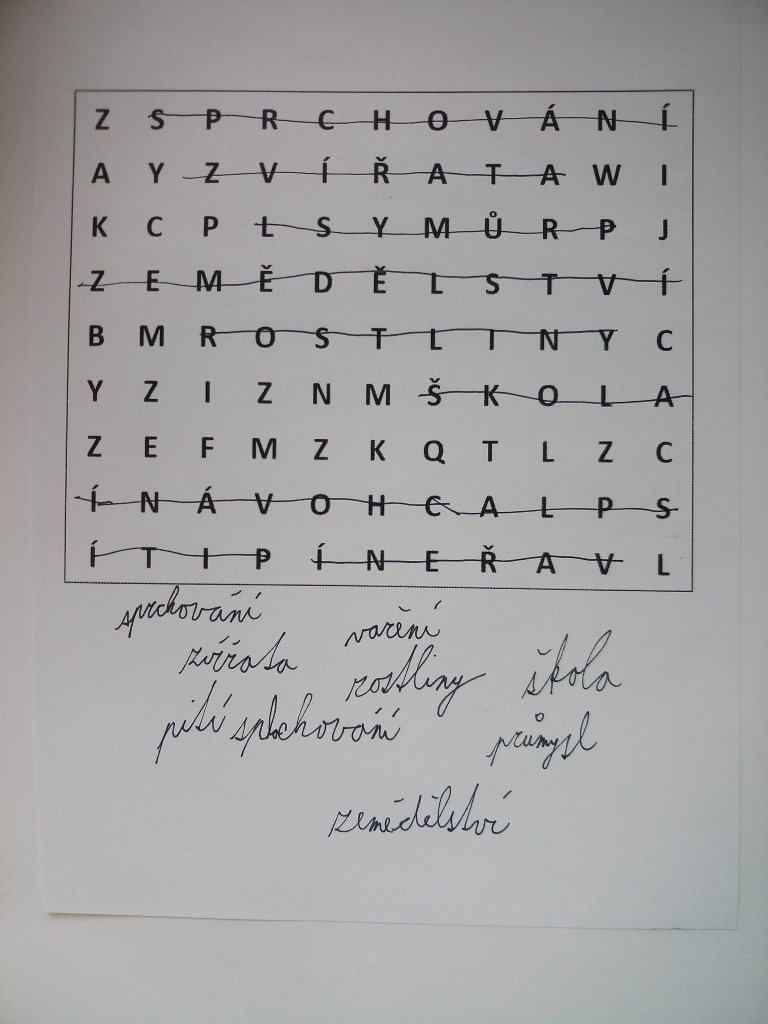 Z S P R C H O V Á N Í
A Y Z V Í Ř A T A W I
K C P L S Y M Ů R P J
Z E M Ě D Ě L S T V Í
B M R O S T L I N Y C
Y Z I Z N M Š K O L A
Z E F M Z K Q T L Z C
Í N Á V O H C A L P S
Í T I P Í N E Ř A V L
sprchování vaření
zvířata rostliny škola
pití splachování průmysl
zemědělství